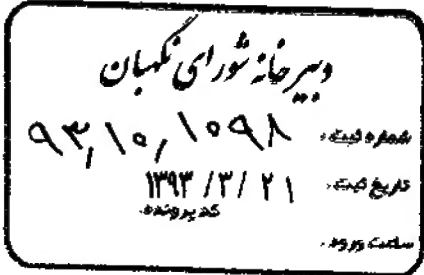 دبیرخانه شورای نگهبان
شماره ثبت: ۹۳/۱۰/۱۰۹۸
تاریخ ثبت: ۱۳۹۳/۳/۲۱
کد پرونده:
ساعت ورود: